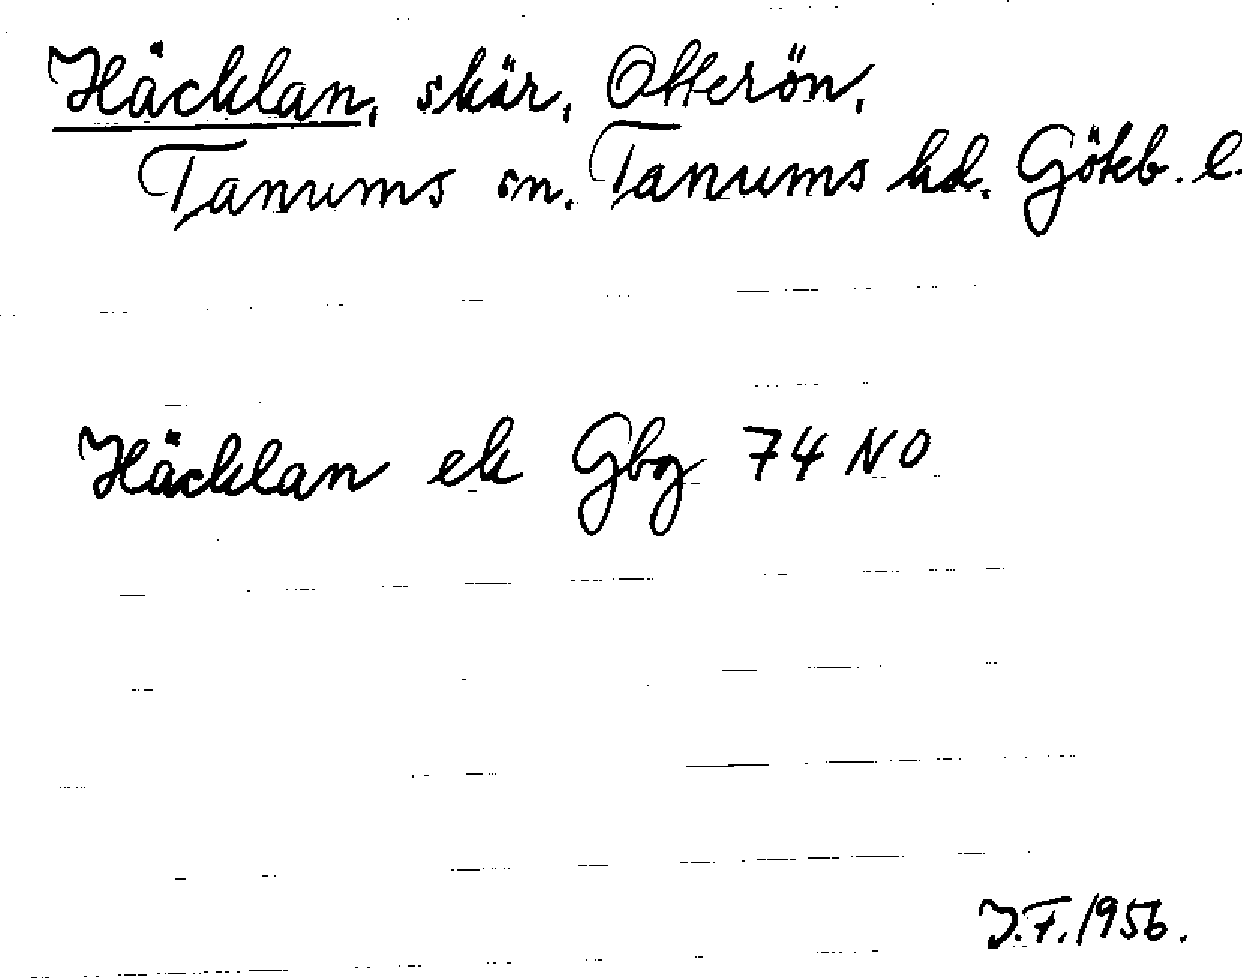 Häcklan, skär, Otterön,
Tanums sn. Tanums hd. Göteb. l.
Häcklan ek Gbg 74 NO
J.F. 1956.